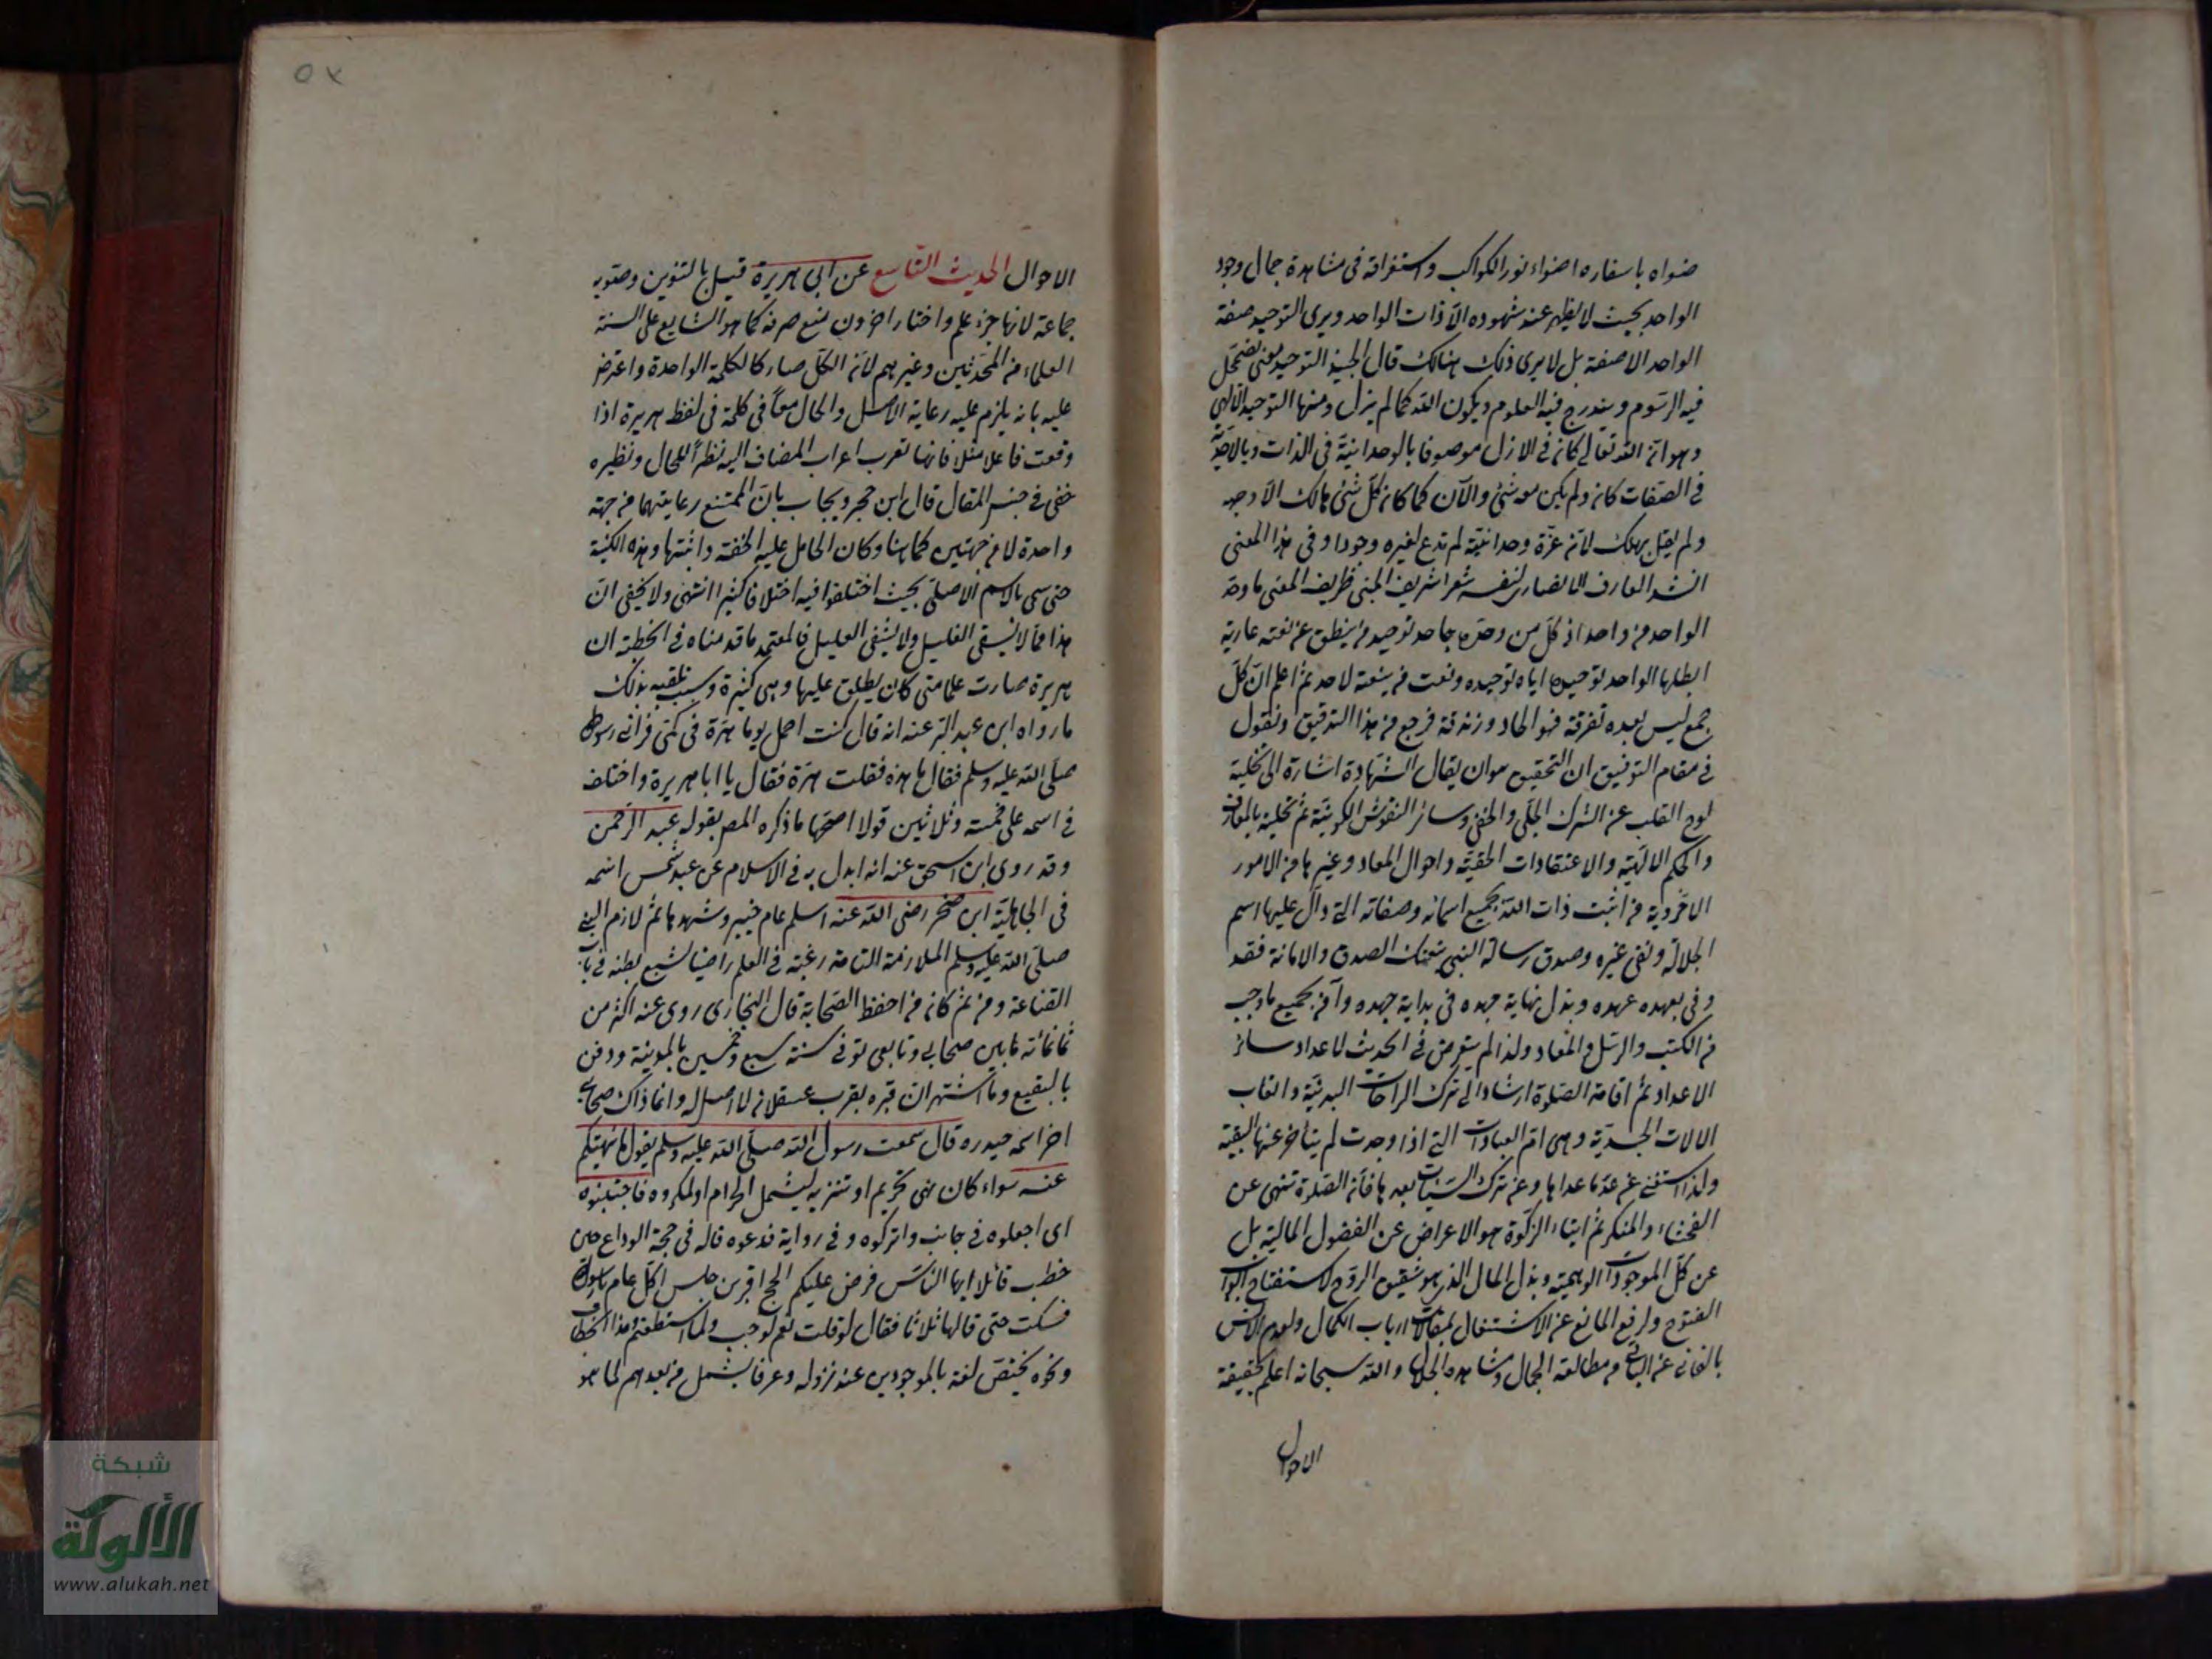 ضواه باسفاره اضواء نور الكواكب واستغراقه فى مشاهدة جمال وجود
الواحد بحيث لا يظهر عند شهوده الا ذات الواحد ويرى التوحيد صفة
الواحد لا صفته بل لا يرى ذلك هنالك قال الجنيد التوحيد معنى يضمحل
فيه الرسوم ويندرج فيه العلوم ويكون الله كما لم يزل ومنها التوحيد الالهى
وهو ان الله تعالى كان فى الازل موصوفا بالوحدانية فى الذات وبالاحدية
فى الصفات كان ولم يكن معه شئ والآن كما كان كل شئ هالك الا وجهه
ولم يقل يهلك لان عزة وحدانيته لم تدع لغيره وجودا وفى هذا المعنى
انشد العارف الانصارى لنفسه شعرا شريف المبنى ظريف المعنى ما وحد
الواحد من واحد اذ كل من وحده جاحد توحيد من ينطق عن نعته عارية
ابطلها الواحد توحيده اياه توحيده ونعت من ينعته لاحد ثم اعلم ان كل
جمع ليس بعده تفرقة فهو الحاد وزندقة فرجع من هذا التدقيق ونقول
فى مقام التوفيق ان التحقيق هو ان يقال الشهادة اشارة الى تخلية
لوح القلب عن الشرك الجلى والخفى وسائر النقوش الكونية ثم تحلية بالمعارف
والحكم الالهية والاعتقادات الحقية واحوال المعاد وغيرها من الامور
الاخروية من اثبت ذات الله بجميع اسمائه وصفاته التى دال عليها اسم
الجلالة ونفى غيره وصدق رسالة النبى بنعتك الصدق والامانة فقد
وفى بعهده عهده وبذل نهاية جهده فى بداية جهده وآمن بجميع ما وجب
من الكتب والرسل والمعاد ولذا لم يتعرض فى الحديث لاعداد سائر
الاعداد ثم اقامة الصلوة ارشاد الى ترك الراحات البدنية واتعاب
الالات الجسدية وهى ام العبادات التى اذا وجدت لم يتأخر عنها البقية
ولذا استغنى عن عد ما عداها وعن ترك السيئات بعدها فان الصلوة تنهى عن
الفحشاء والمنكر ثم ايتاء الزكوة هو الاعراض عن الفضول المالية بل
عن كل الموجودات الوهمية وبذل المال الذى هو شقيق الروح لاستفتاح ابواب
الفتوح ولرفع المانع عن الاشتغال بمقالات ارباب الكمال ولعدم الانس
بالفانى عن الباقى من مطالعة الجمال ومشاهدة الجلال والله سبحانه اعلم بحقيقة
الاحوال
الاحوال الحديث التاسع عن ابى هريرة قيل بالتنوين وصوبه
جماعة لانها جزء علم واختار اخرون منع صرفه كما هو الشايع على السنة
العلماء من المحدثين وغيرهم لان الكل صار كالكلمة الواحدة واعترض
عليه بانه يلزم عليه رعاية الاصل والحال معا فى كلمة فى لفظ هريرة اذا
وقعت فاعلا مثلا فانها تعرب اعراب المضاف اليه نظرا للحال ونظيره
خفى فى جنس المقال قال ابن حجر ويجاب بان الممتنع رعايتهما من جهة
واحدة لا من جهتين كما هنا وكان الحامل عليه الخفة واشتهار هذه الكنية
حتى نسى بالاسم الاصلى بحيث اختلفوا فيه اختلافا كثيرا انتهى ولا يخفى ان
هذا مما لا يسقى الغليل ولا يشفى العليل فالمعتمد ما قدمناه فى الخطبة ان
هريرة صارت علما متى كان يطلق عليها وهى كثيرة وسبب تلقبه بذلك
ما رواه ابن عبد البر عنه انه قال كنت احمل يوما هرة فى كمى فرانى رسول الله
صلى الله عليه وسلم فقال ما هذه فقلت هرة فقال يا ابا هريرة واختلف
فى اسمه على خمسة وثلاثين قولا اصحها ما ذكره المص بقوله عبد الرحمن
وقد روى ابن اسحق عنه انه ابدل به فى الاسلام عن عبد شمس اسمه
فى الجاهلية ابن صخر رضى الله عنه اسلم عام خيبر وشهدها ثم لازم النبى
صلى الله عليه وسلم الملازمة التامة رغبة فى العلم راضيا بشبع بطنه فى باب
القناعة ومن ثم كان من احفظ الصحابة قال البخارى روى عنه اكثر من
ثمانمائة ما بين صحابى وتابعى توفى سنة سبع وخمسين بالمدينة ودفن
بالبقيع وما اشتهر ان قبره بقرب عسقلان لا اصل له وانما ذاك صحابى
اخر اسمه حيدره قال سمعت رسول الله صلى الله عليه وسلم يقول ما نهيتكم
عنه سواء كان نهى تحريم او تنزيه ليشمل الحرام والمكروه فاجتنبوه
اى اجعلوه فى جانب واتركوه وفى رواية فدعوه قاله فى حجة الوداع حين
خطب قائلا ايها الناس فرض عليكم الحج اقرع بن حابس اكل عام يا رسول الله
فسكت حتى قالها ثلاثا فقال لو قلت نعم لوجب ولما استطعتم وهذا الخطاب
ونحوه يختص لغة بالموجودين عند نزوله وعرفا يشمل من بعدهم لما هو
شبكة
الألوكة
www.alukah.net